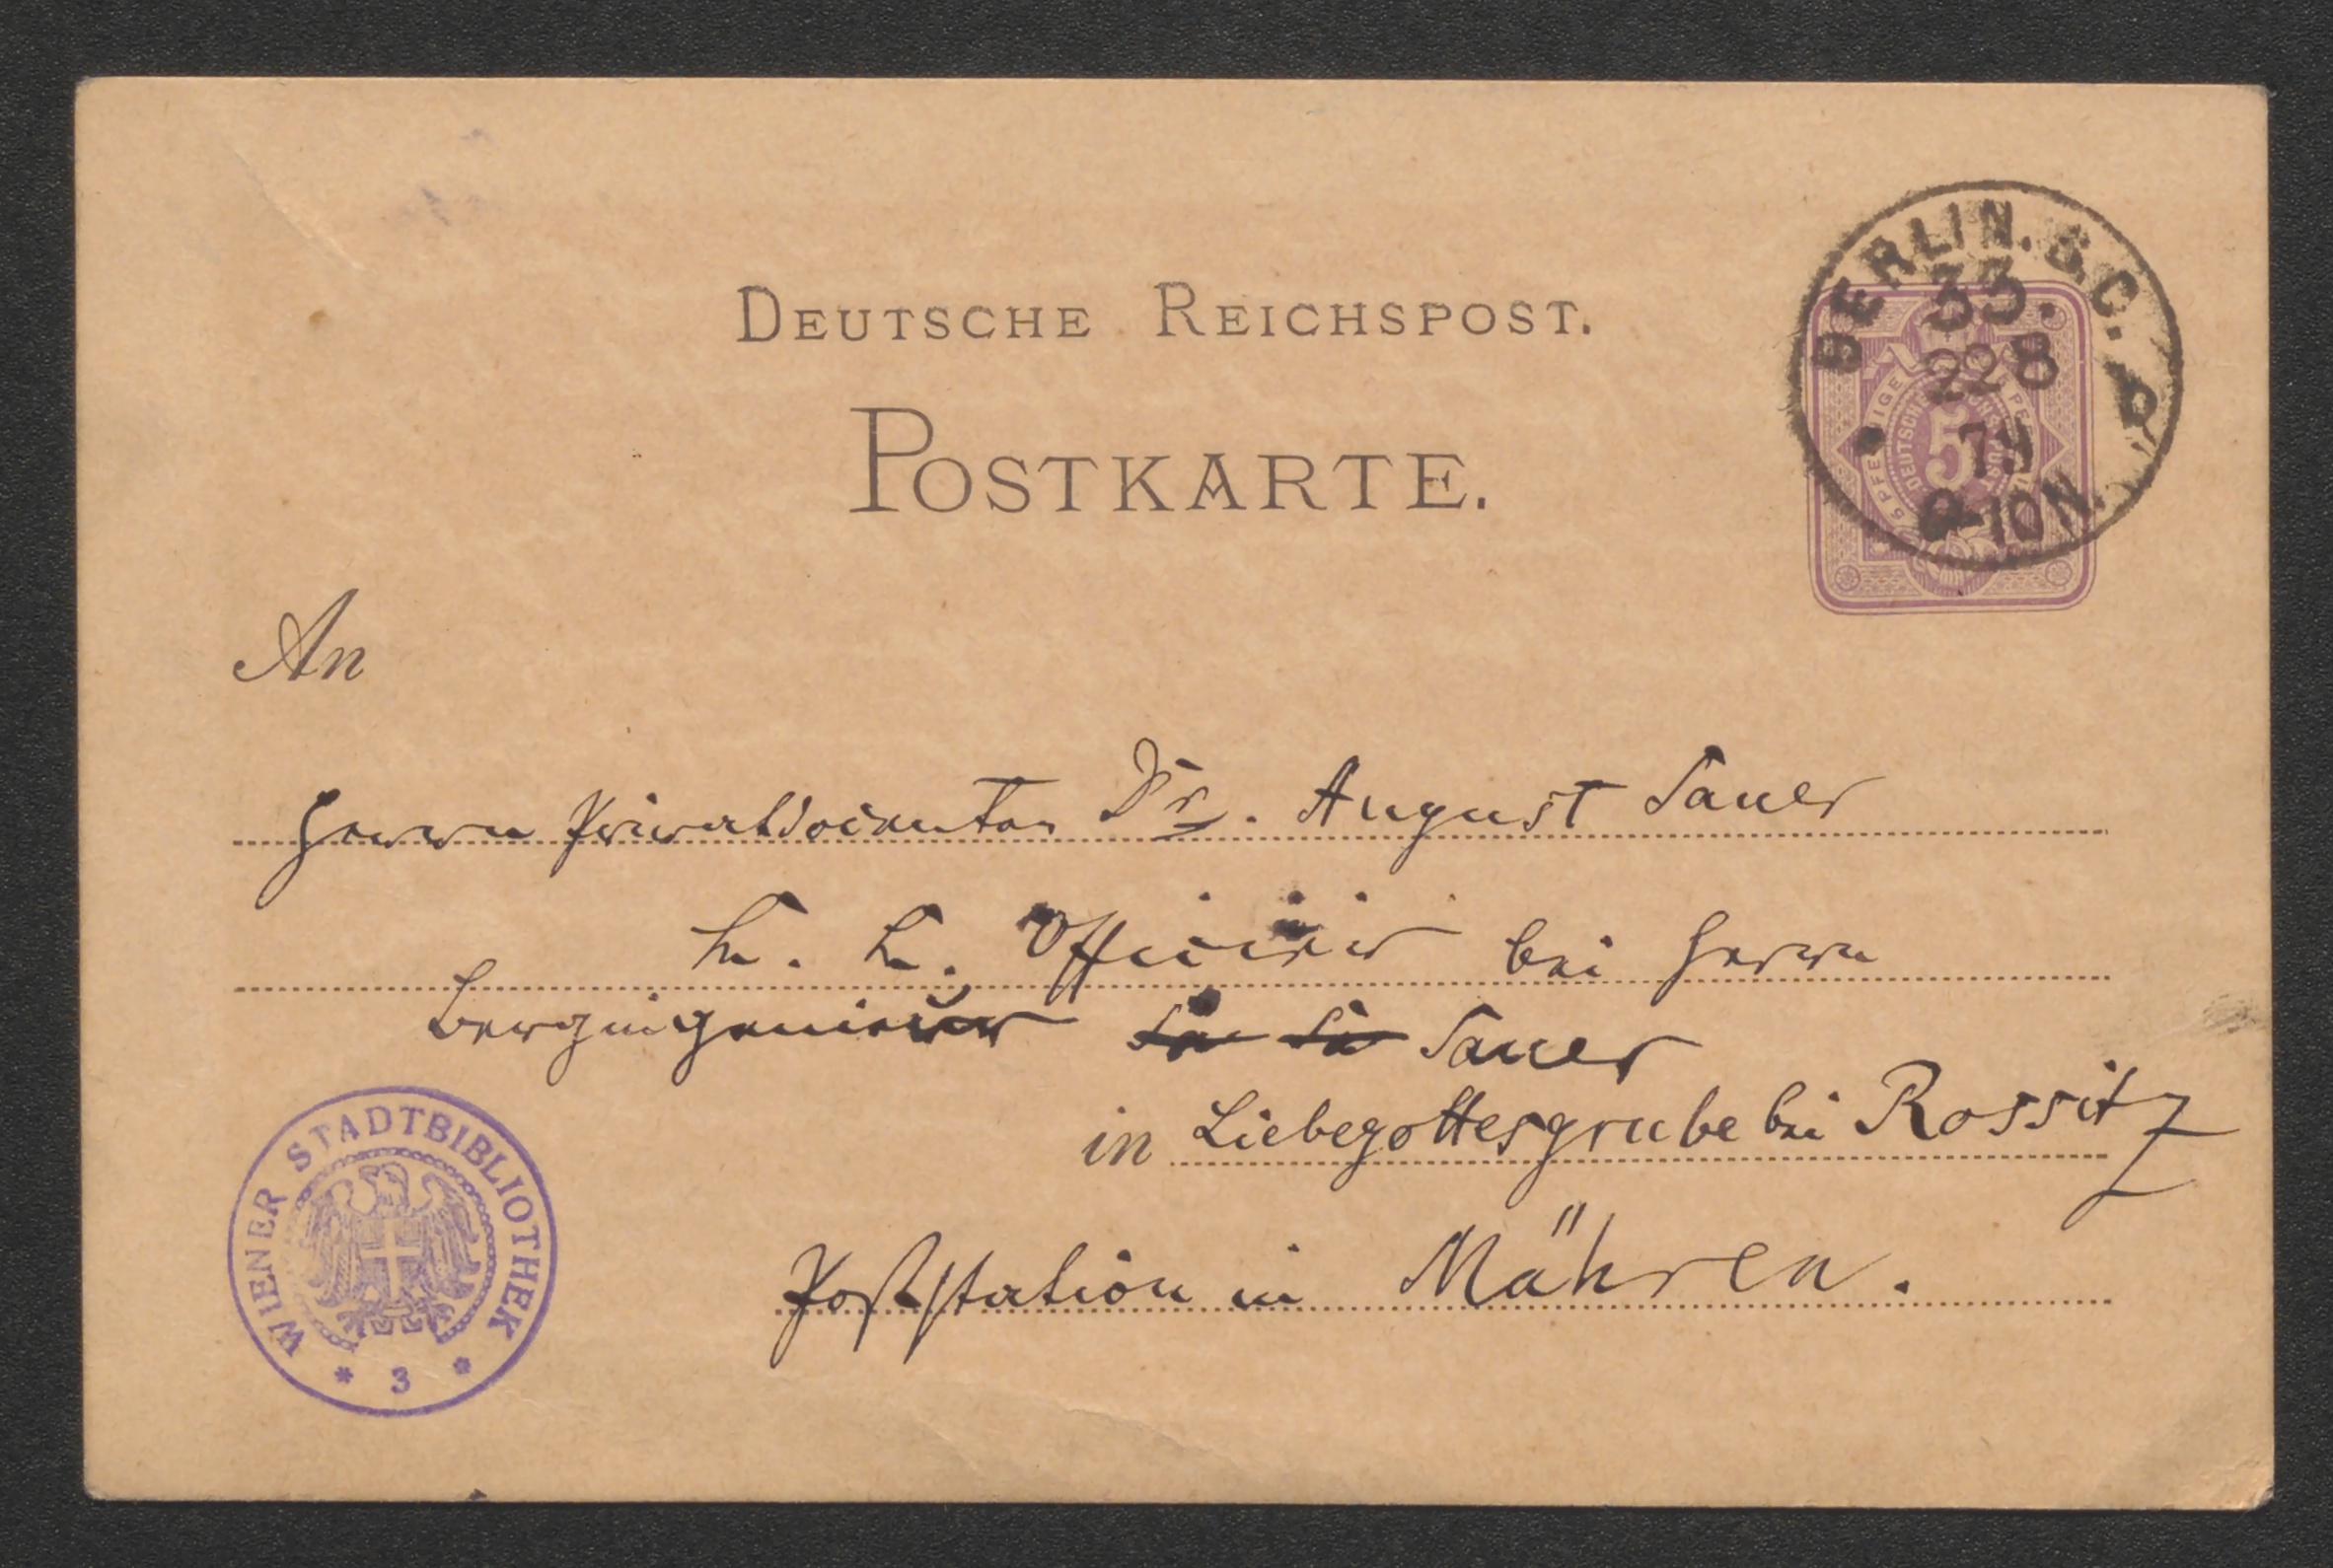 DEUTSCHE REICHSPOST.
POSTKARTE.
BERLIN. S.C. P.
33.
22 8
79
9-10N.
5
An
Herrn Privatdocenten Dr. August Sauer
k. k. Officier bei Herrn
Bergingenieur Sauer
in Liebegottesgrube bei Rossitz
Poststation in Mähren.
WIENER STADTBIBLIOTHEK
* 3 *